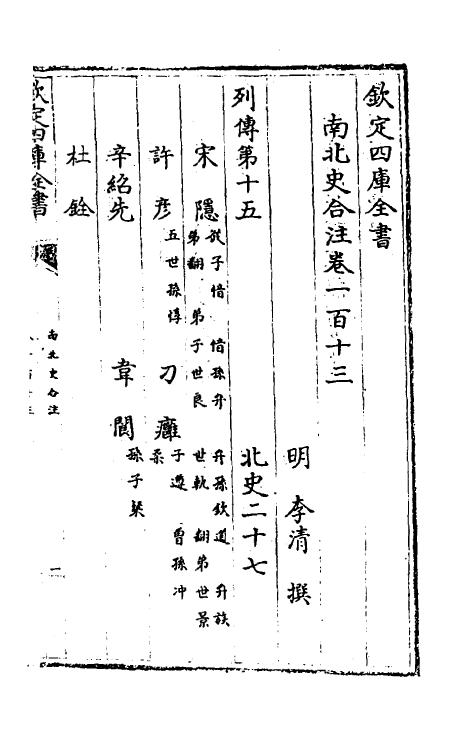 欽定四庫全書
南北史合注卷一百十三
明 李清 撰
列傳第十五 北史二十七
宋隱 從子愔 愔孫弁 弁孫欽道 弁族
弟翻 弟子世良 世軌 翻弟世景
許彥 五世孫惇 刁雍 子遵 曾孫冲
柔
辛紹先 韋閬 孫子粲
杜銓
欽定四庫全書
南北史合注
一